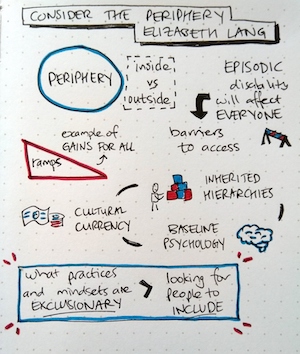 CONSIDER THE PERIPHERY
ELIZABETH LANG
PERIPHERY
inside
vs
outside
EPISODIC
disability
will affect
EVERYONE
example of
GAINS FOR ALL
ramps
barriers
to access
INHERITED
HIERARCHIES
CULTURAL
CURRENCY
BASELINE
PSYCHOLOGY
what practices
and mindsets are
EXCLUSIONARY
>
looking for
people to
INCLUDE